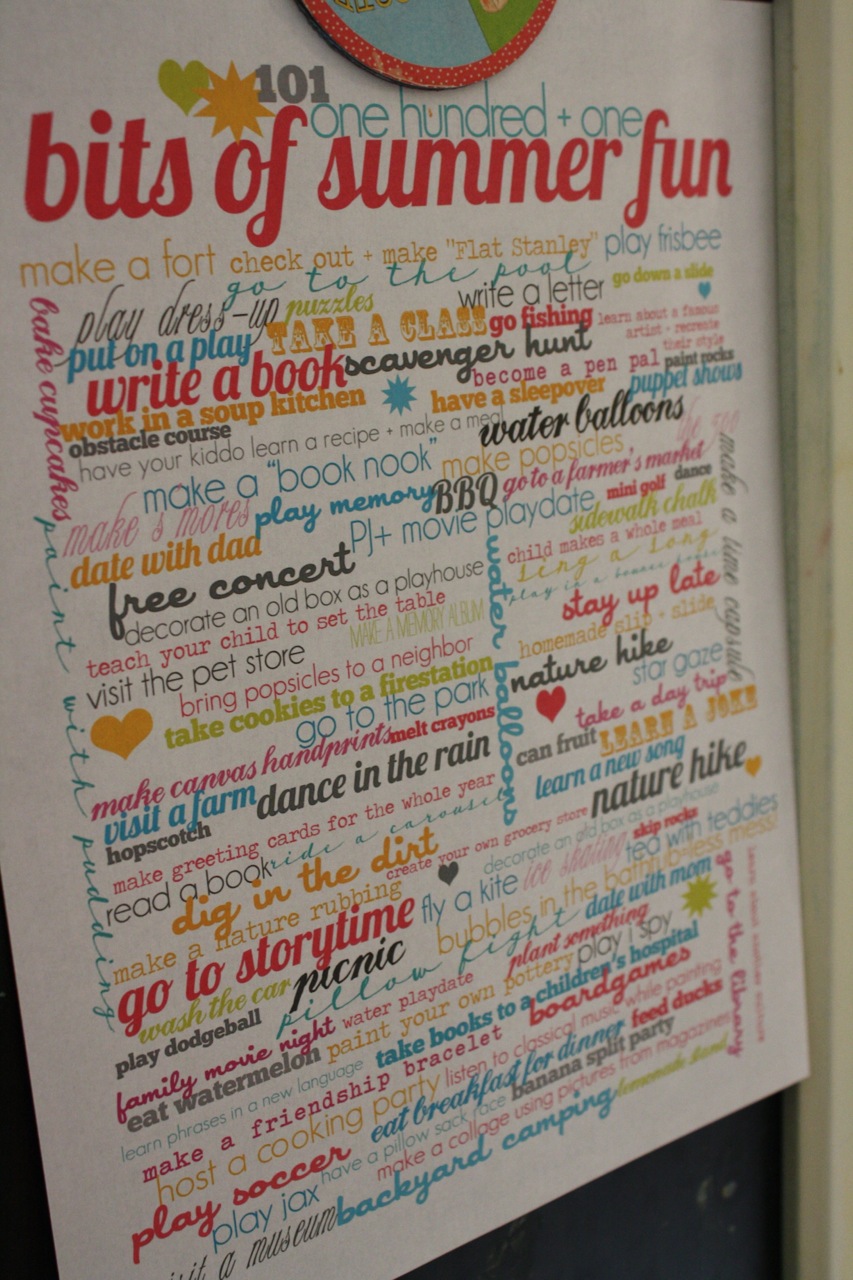 101
one hundred + one
bits of summer fun
make a fort
check out + make "Flat Stanley"
play frisbee
go to the pool
go down a slide
play dress-up
puzzles
write a letter
TAKE A CLASS
go fishing
learn about a famous
artist - recreate
their style
put on a play
scavenger hunt
write a book
become a pen pal
paint rocks
work in a soup kitchen
have a sleepover
puppet shows
obstacle course
water balloons
the zoo
have your kiddo learn a recipe + make a meal
bake cupcakes
make a "book nook"
make popsicles
go to a farmer's market
make s'mores
play memory
BBQ
mini golf
dance
make a time capsule
date with dad
PJ+ movie playdate
sidewalk chalk
free concert
child makes a whole meal
sing a song
play in a bounce house
decorate an old box as a playhouse
stay up late
teach your child to set the table
MAKE A MEMORY ALBUM
water balloons
homemade slip + slide
visit the pet store
nature hike
star gaze
bring popsicles to a neighbor
take cookies to a firestation
take a day trip
go to the park
can fruit
LEARN A JOKE
paint with pudding
make canvas handprints
melt crayons
learn a new song
visit a farm
dance in the rain
nature hike
hopscotch
make greeting cards for the whole year
create your own grocery store
decorate an old box as a playhouse
read a book
ride a carousel
skip rocks
dig in the dirt
ice skating
tea with teddies
make a nature rubbing
fly a kite
bubbles in the bathtub-less mess!
go to storytime
date with mom
wash the car
picnic
pillow fight
plant something
play i spy
play dodgeball
go to the library
learn about another culture
family movie night
water playdate
paint your own pottery
take books to a children's hospital
eat watermelon
boardgames
learn phrases in a new language
make a friendship bracelet
listen to classical music while painting
feed ducks
host a cooking party
eat breakfast for dinner
banana split party
play soccer
have a pillow sack race
make a collage using pictures from magazines
lemonade stand
play jax
backyard camping
visit a museum